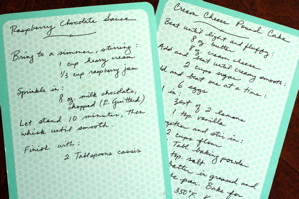 Raspberry Chocolate Sauce
Bring to a simmer, stirring:
1 cup heavy cream
1/3 cup raspberry jam
Sprinkle in:
8 oz. milk chocolate,
chopped (I Guittard)
Let stand 10 minutes, Then
whisk until smooth
Finish with:
2 Tablespoons cassis
Cream Cheese Pound Cake
Beat until light and fluffy:
butter
Add and beat until creamy smooth:
8 oz cream cheese
2 cups sugar
Add and beat one at a time:
6 eggs
in:
zest 2 lemons
1 tsp. vanilla
together and stir in:
2 cups flour
baking powder
tsp. salt
batter in greased and
pan. Bake for
350°F.